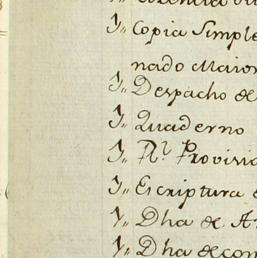 Y,, Copia Simple
nado Maior
Y,, Despacho de
Y,, Quaderno
Y,, Rl. Provisi
Y,, Escriptura
Y,, Dha de
Y,, Dha de con